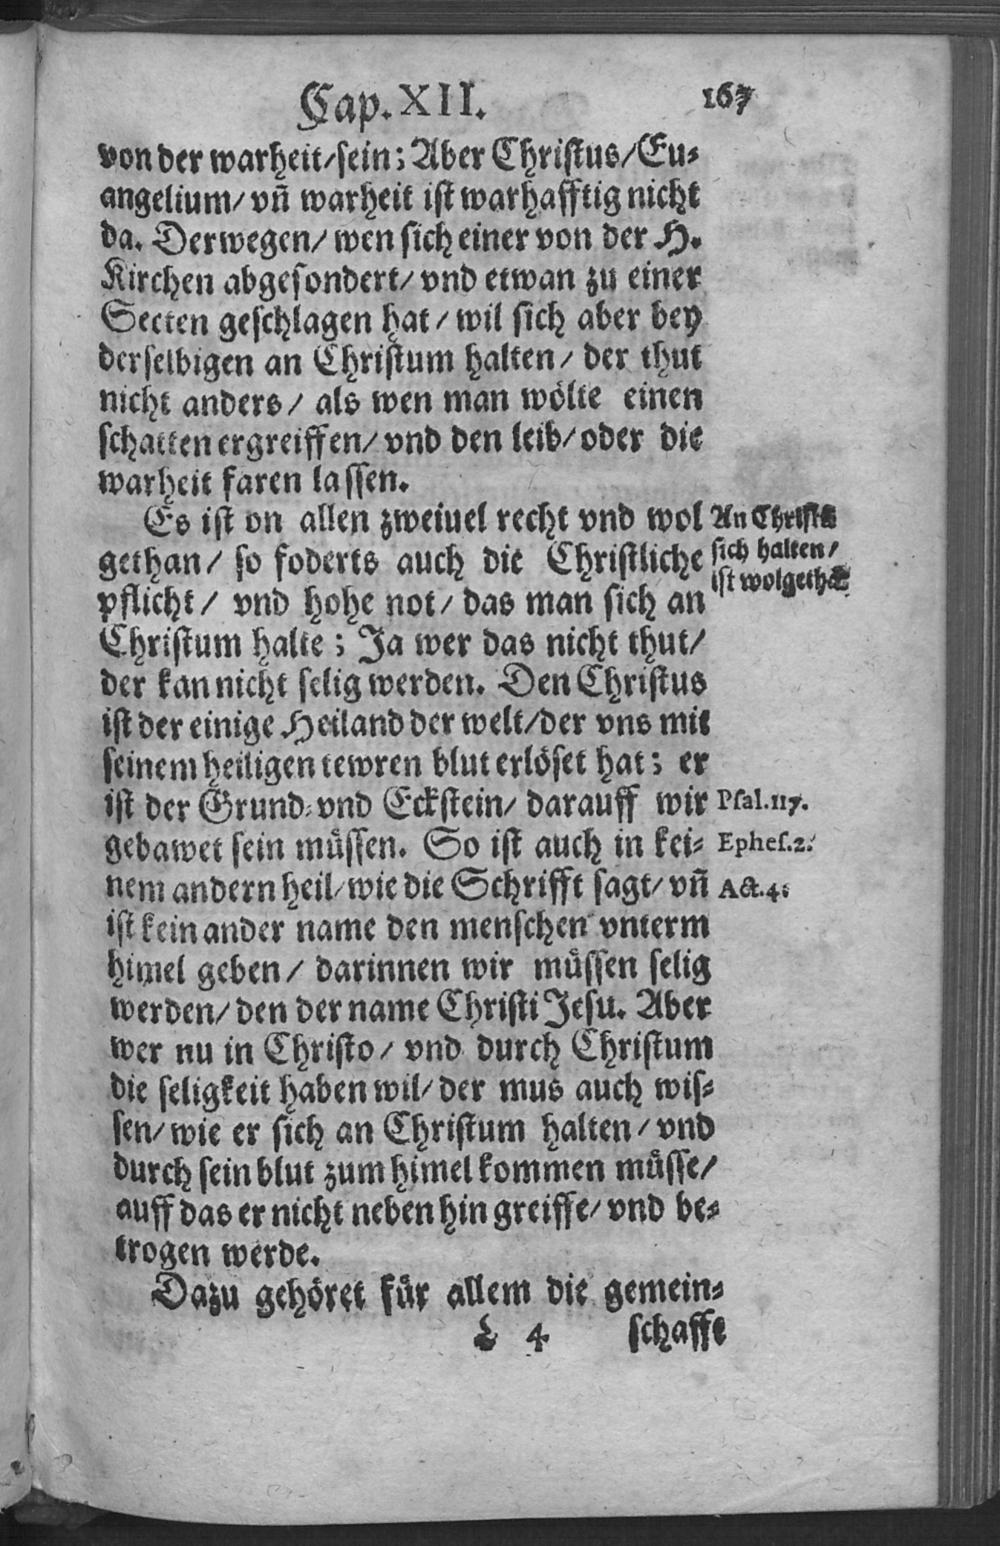 Cap. XII. 167
von der warheit/ sein; Aber Christus/ Eu-
angelium/ vn̄ warheit ist warhafftig nicht
da. Derwegen/ wen sich einer von der H.
Kirchen abgesondert/ vnd etwan zu einer
Secten geschlagen hat/ wil sich aber bey
derselbigen an Christum halten/ der thut
nicht anders/ als wen man wölte einen
schatten ergreiffen/ vnd den leib/ oder die
warheit faren lassen.
Es ist on allen zweiuel recht vnd wol
gethan/ so foderts auch die Christliche
pflicht/ vnd hohe not/ das man sich an
Christum halte; Ja wer das nicht thut/
der kan nicht selig werden. Den Christus
ist der einige Heiland der welt/ der vns mit
seinem heiligen tewren blut erlöset hat; er
ist der Grund- vnd Eckstein/ darauff wir
gebawet sein müssen. So ist auch in kei-
nem andern heil/ wie die Schrifft sagt/ vn̄
ist kein ander name den menschen vnterm
himel geben/ darinnen wir müssen selig
werden/ den der name Christi Jesu. Aber
wer nu in Christo/ vnd durch Christum
die seligkeit haben wil/ der mus auch wis-
sen/ wie er sich an Christum halten/ vnd
durch sein blut zum himel kommen müsse/
auff das er nicht neben hin greiffe/ vnd be-
trogen werde.
Dazu gehöret für allem die gemein-
L 4 schafft
An Christū
sich halten/
ist wolgethā
Psal. 117.
Ephes. 2.
Act. 4.